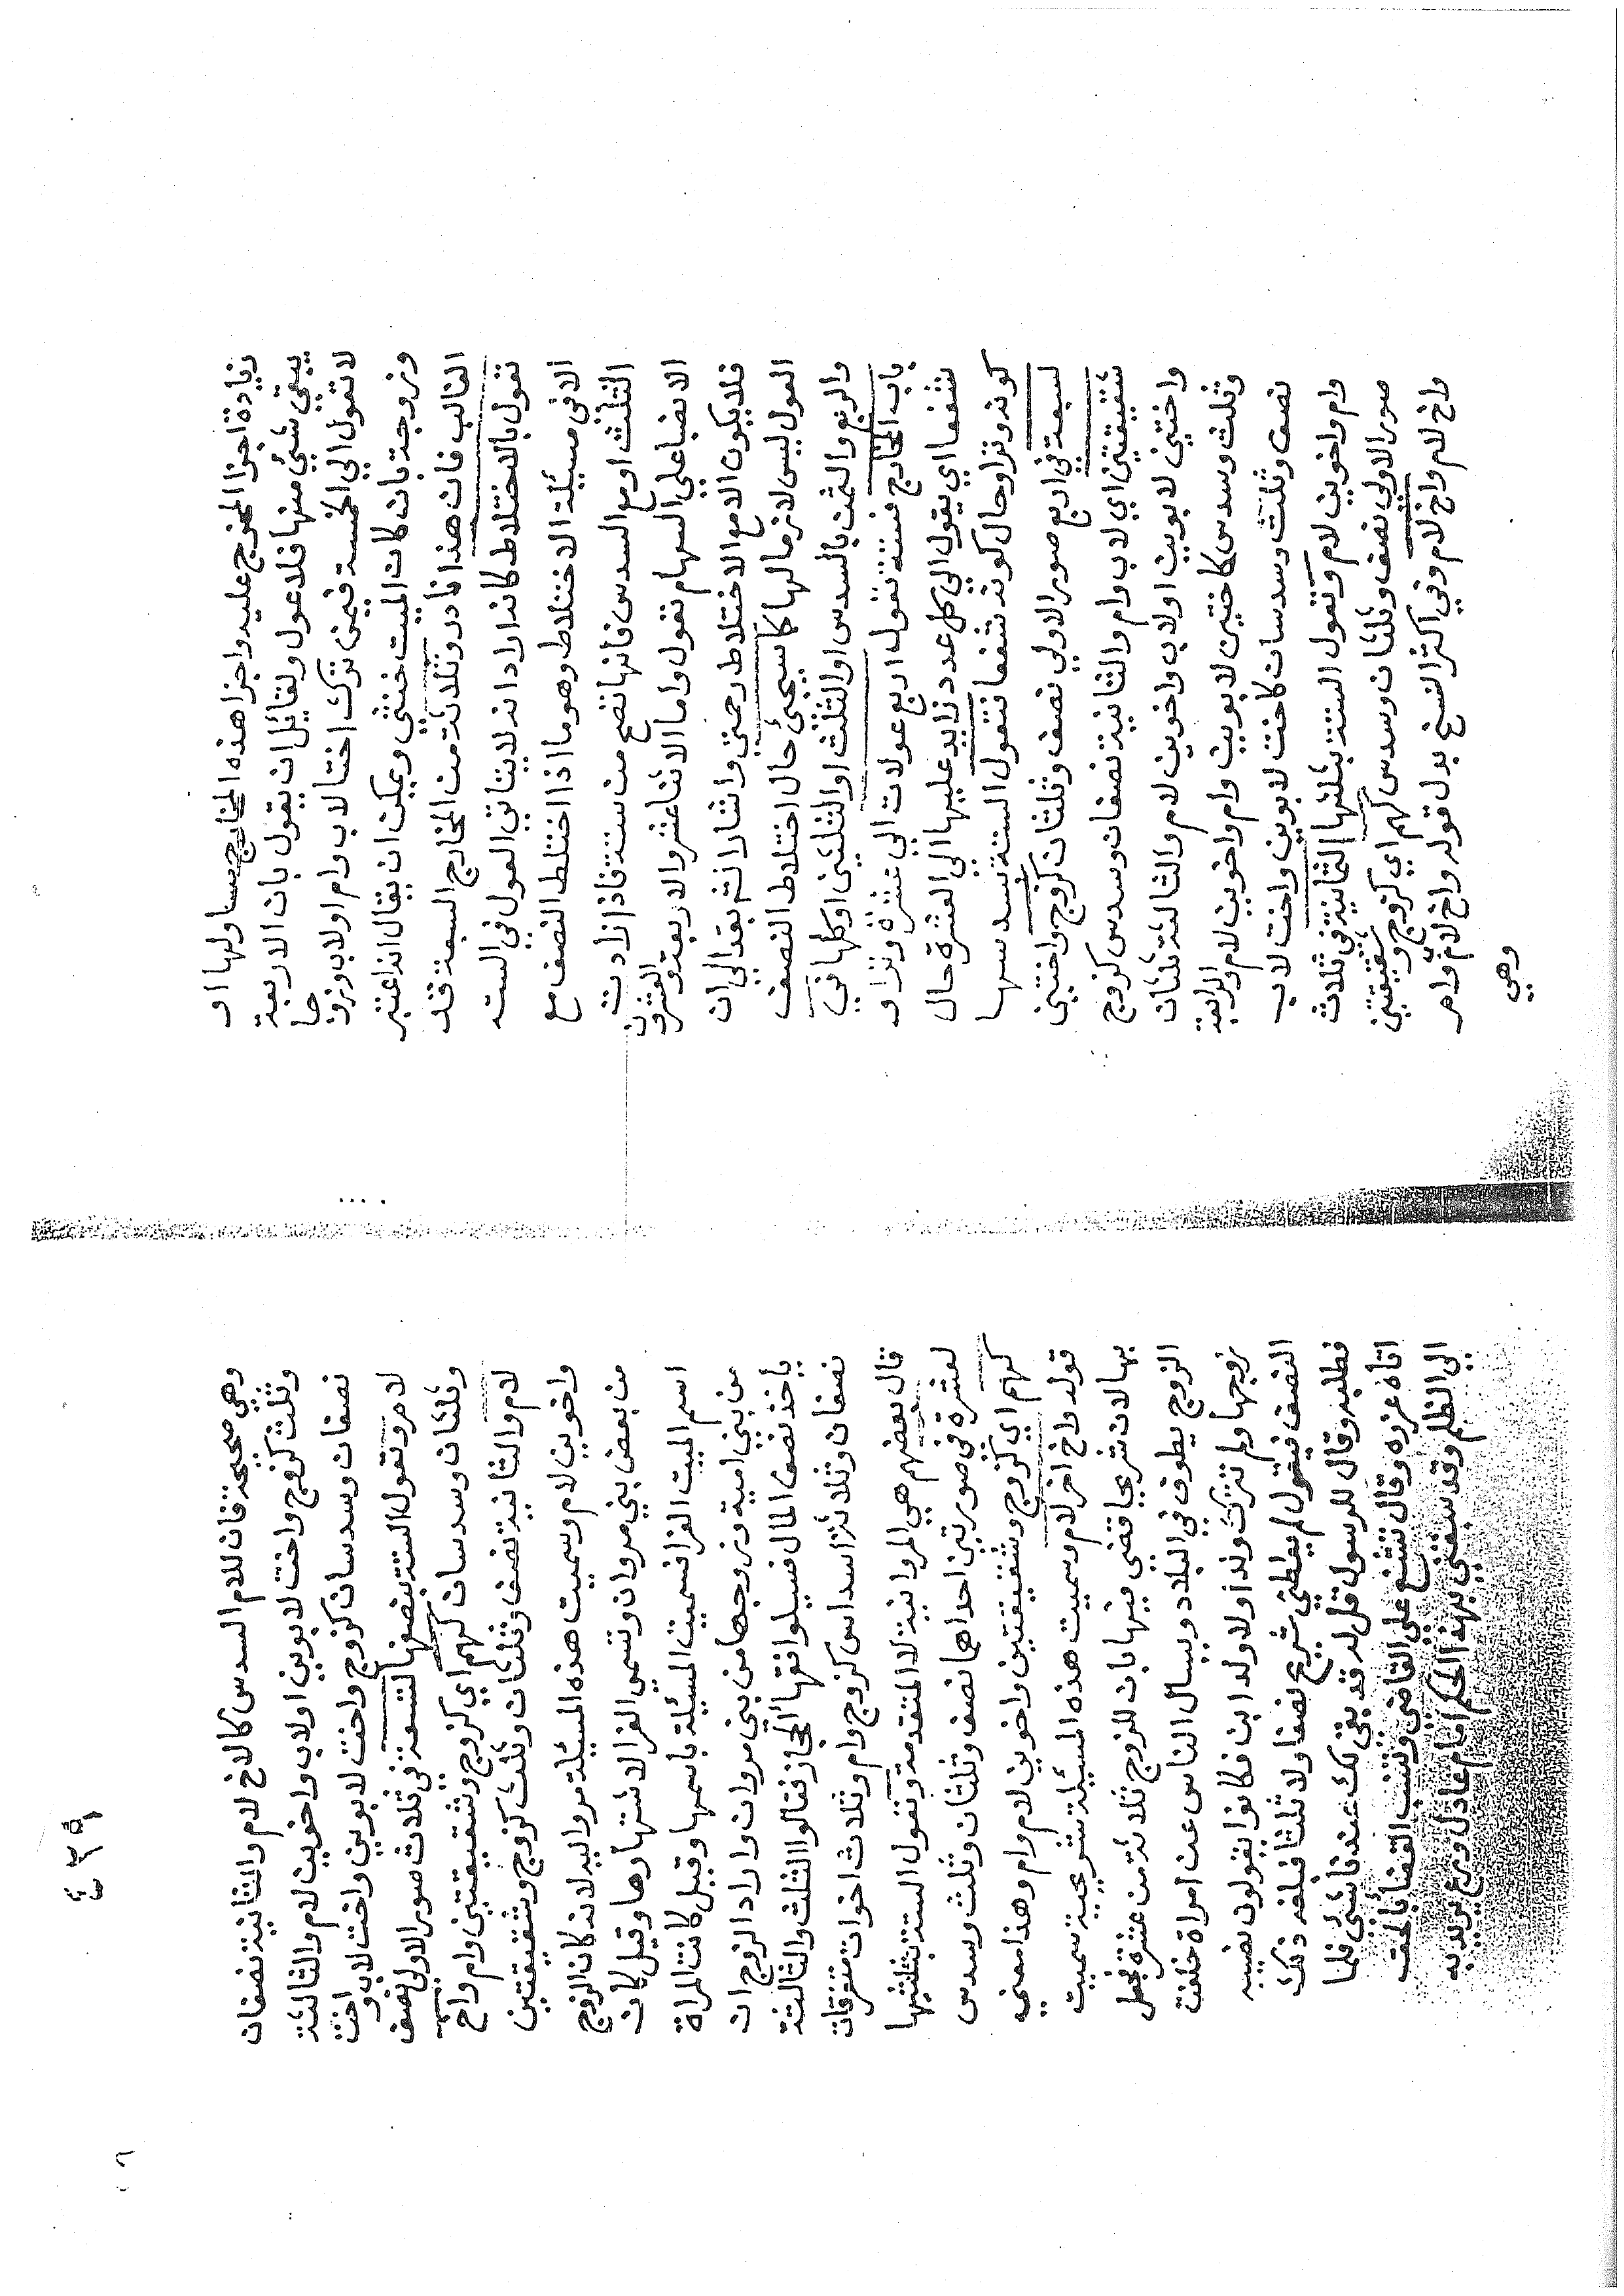 زيادة اجزا المخرج عليه واجزا هذه المخارج مساو لها او
يبقي شيئ منها فلا عول ولقائل ان يقول بان الاربعة
لا تعول الي الخمسة فيمن ترك اختا لاب وام او لاب وزوجا
وزوجة بان كان الميت خنثي ويمكن ان يقال انه اعتبر
الغالب فان هذا نادر وثلاثة من المخارج السبعة قد
تعول بالاختلاط كانه اراد انه لا يتاتي العول في الستة
الا في مسيلة الاختلاط وهو ما اذا اختلط النصف مع
الثلث او مع السدس فانها تصح من ستة فاذا زادت
الانصبا علي السهام تعول واما الاثنا عشر والاربعة والعشرون
فلا يكون الا مع الاختلاط رحمتي واشار الشم بقد الي ان
العول ليس لازما لها كما سيجئ حال اختلاط النصف
والربع والثمن بالسدس او الثلث او الثلثين او كلها في
باب المخارج فستة تعول اربع عولات الي عشرة وترا و
شفعا اي يعول الي كل عدد زايد عليها الي العشرة حال
كونه وترا وحال كونه شفعا فتعول الستة بسدسها
لسبعة في اربع صور الاولي نصف وثلثان كزوج واختين
شقيقتين اي لاب وام والثانية نصفان وسدس كزوج
واختين لابوين او لاب واخوين لام والثالثة ثلثان
وثلث وسدس كاختين لابوين وام واخوين لام والرابعة
نصف وثلث وسدسان كاخت لابوين واخت لاب
وام واخوين لام وتعول الستة بثلثها الثمانية في ثلاث
صور الاولي نصف وثلثان وسدس كهم اي كزوج وشقيقتين
واخ للام واخ لام وفي اكثر النسخ بدل قوله واخ لام وام
وهي
٤٣٩
وهي صحيحة فان للام السدس كالاخ لام والثانية نصفان
وثلث كزوج واخت لابوين او لاب واخوين لام والثالثة
نصفان وسدسان كزوج واخت لابوين واخت لاب واخت
لام وتعول الستة بنصفها لتسعة في ثلاث صور الاولي نصف
وثلثان وسدسان كهم اي كزوج وشقيقتين وام واخ
لام والثانية نصف وثلثان وثلث كزوج وشقيقتين
واخوين لام وسميت هذه المسيلة مروانيه لانه كان الزوج
من بعض بني مروان وتسمي الغرا لاشتهارها وقيل كان
اسم الميت الغرا فسميت المسيلة باسمها وقيل كانت المراة
من بني امية وزوجها من بني مروان واراد الزوج ان
ياخذ نصف المال فسيلوا فقها الحجاز فقالوا الثلث والثالثة
نصفان وثلاثة اسداس كزوج وام وثلاث اخوات متفرقات
قال بعضهم هي المروانية لا المتقدمة وتعول الستة بثلثيها
لعشرة في صورتين احداهما نصف وثلثان وثلث وسدس
كهم اي كزوج وشقيقتين واخوين لام وام وهذا معني
قوله واخ اخر لام وسميت هذه المسيلة شريحية سميت
بها لان شريحا قضي فيها بان للزوج ثلاثة من عشرة فجعل
الزوج يطوف في البلاد ويسال الناس عن امراة خلفت
زوجها ولم تترك ولدا ولا ولد ابن فكانوا يقولون نصيبه
النصف فيقول لم يعطني شريح نصفا ولا ثلثا فبلغه ذلك
فطلبه وقال للرسول قل له قد بقي لك عندنا شئ فلما
اتاه عزره وقال تشنع علي القاضي وتنسب القضا بالحق
الي الظلم وقد سبقني بهذا الحكم امام عادل ورع يريد به